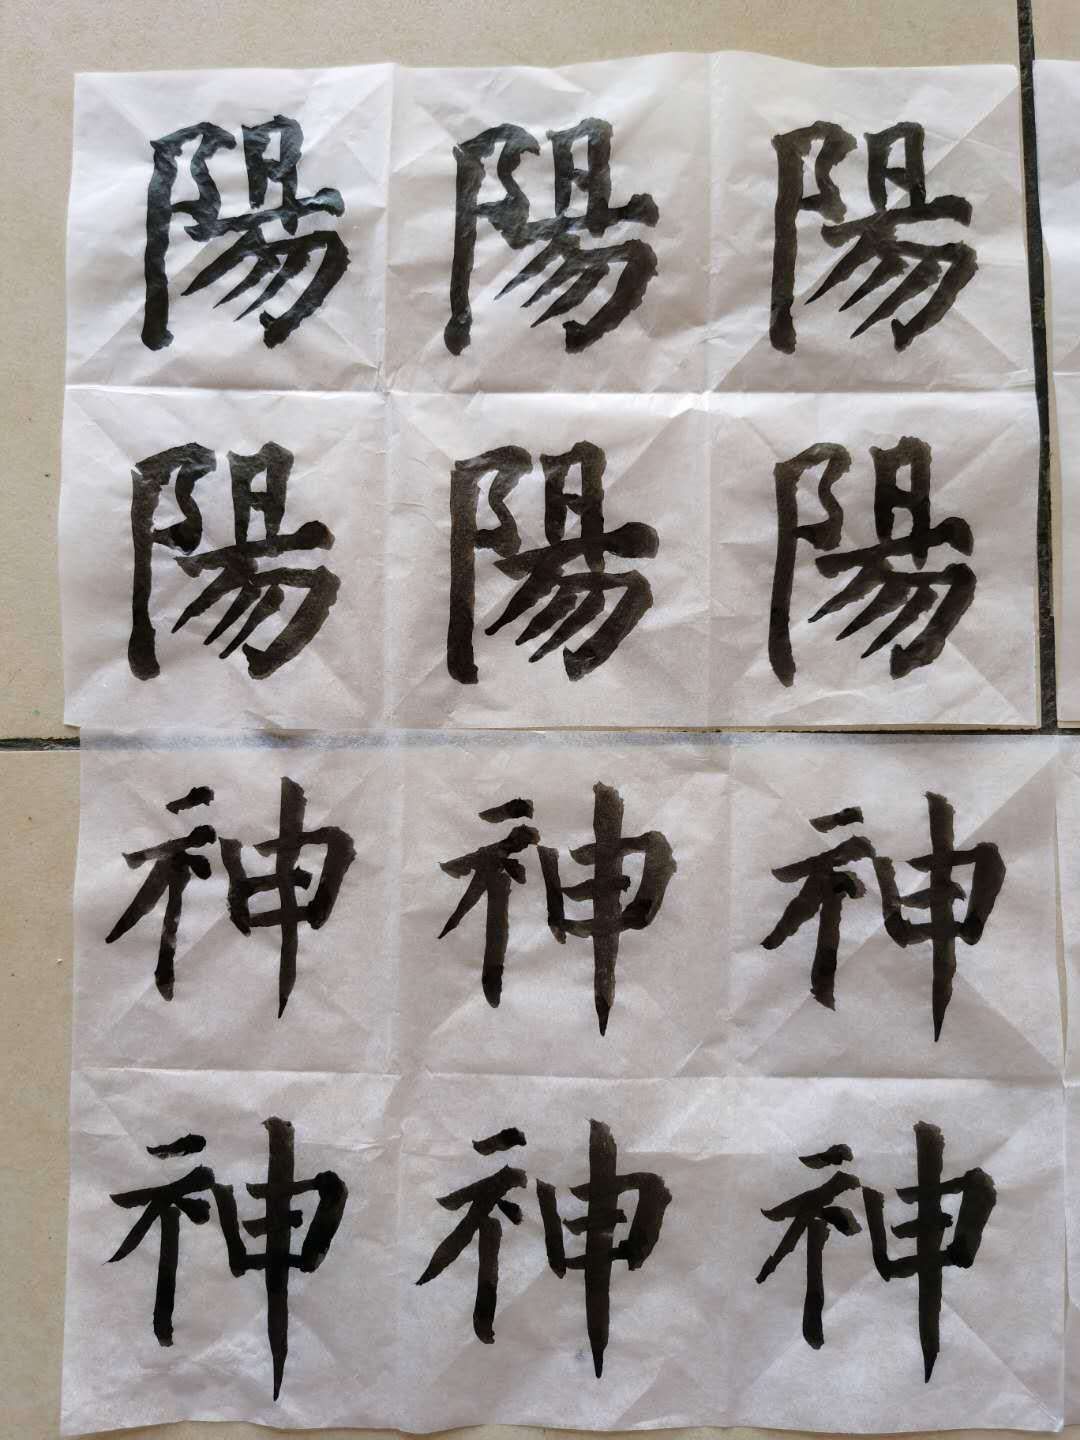 陽陽陽
陽陽陽
神神神
神神神